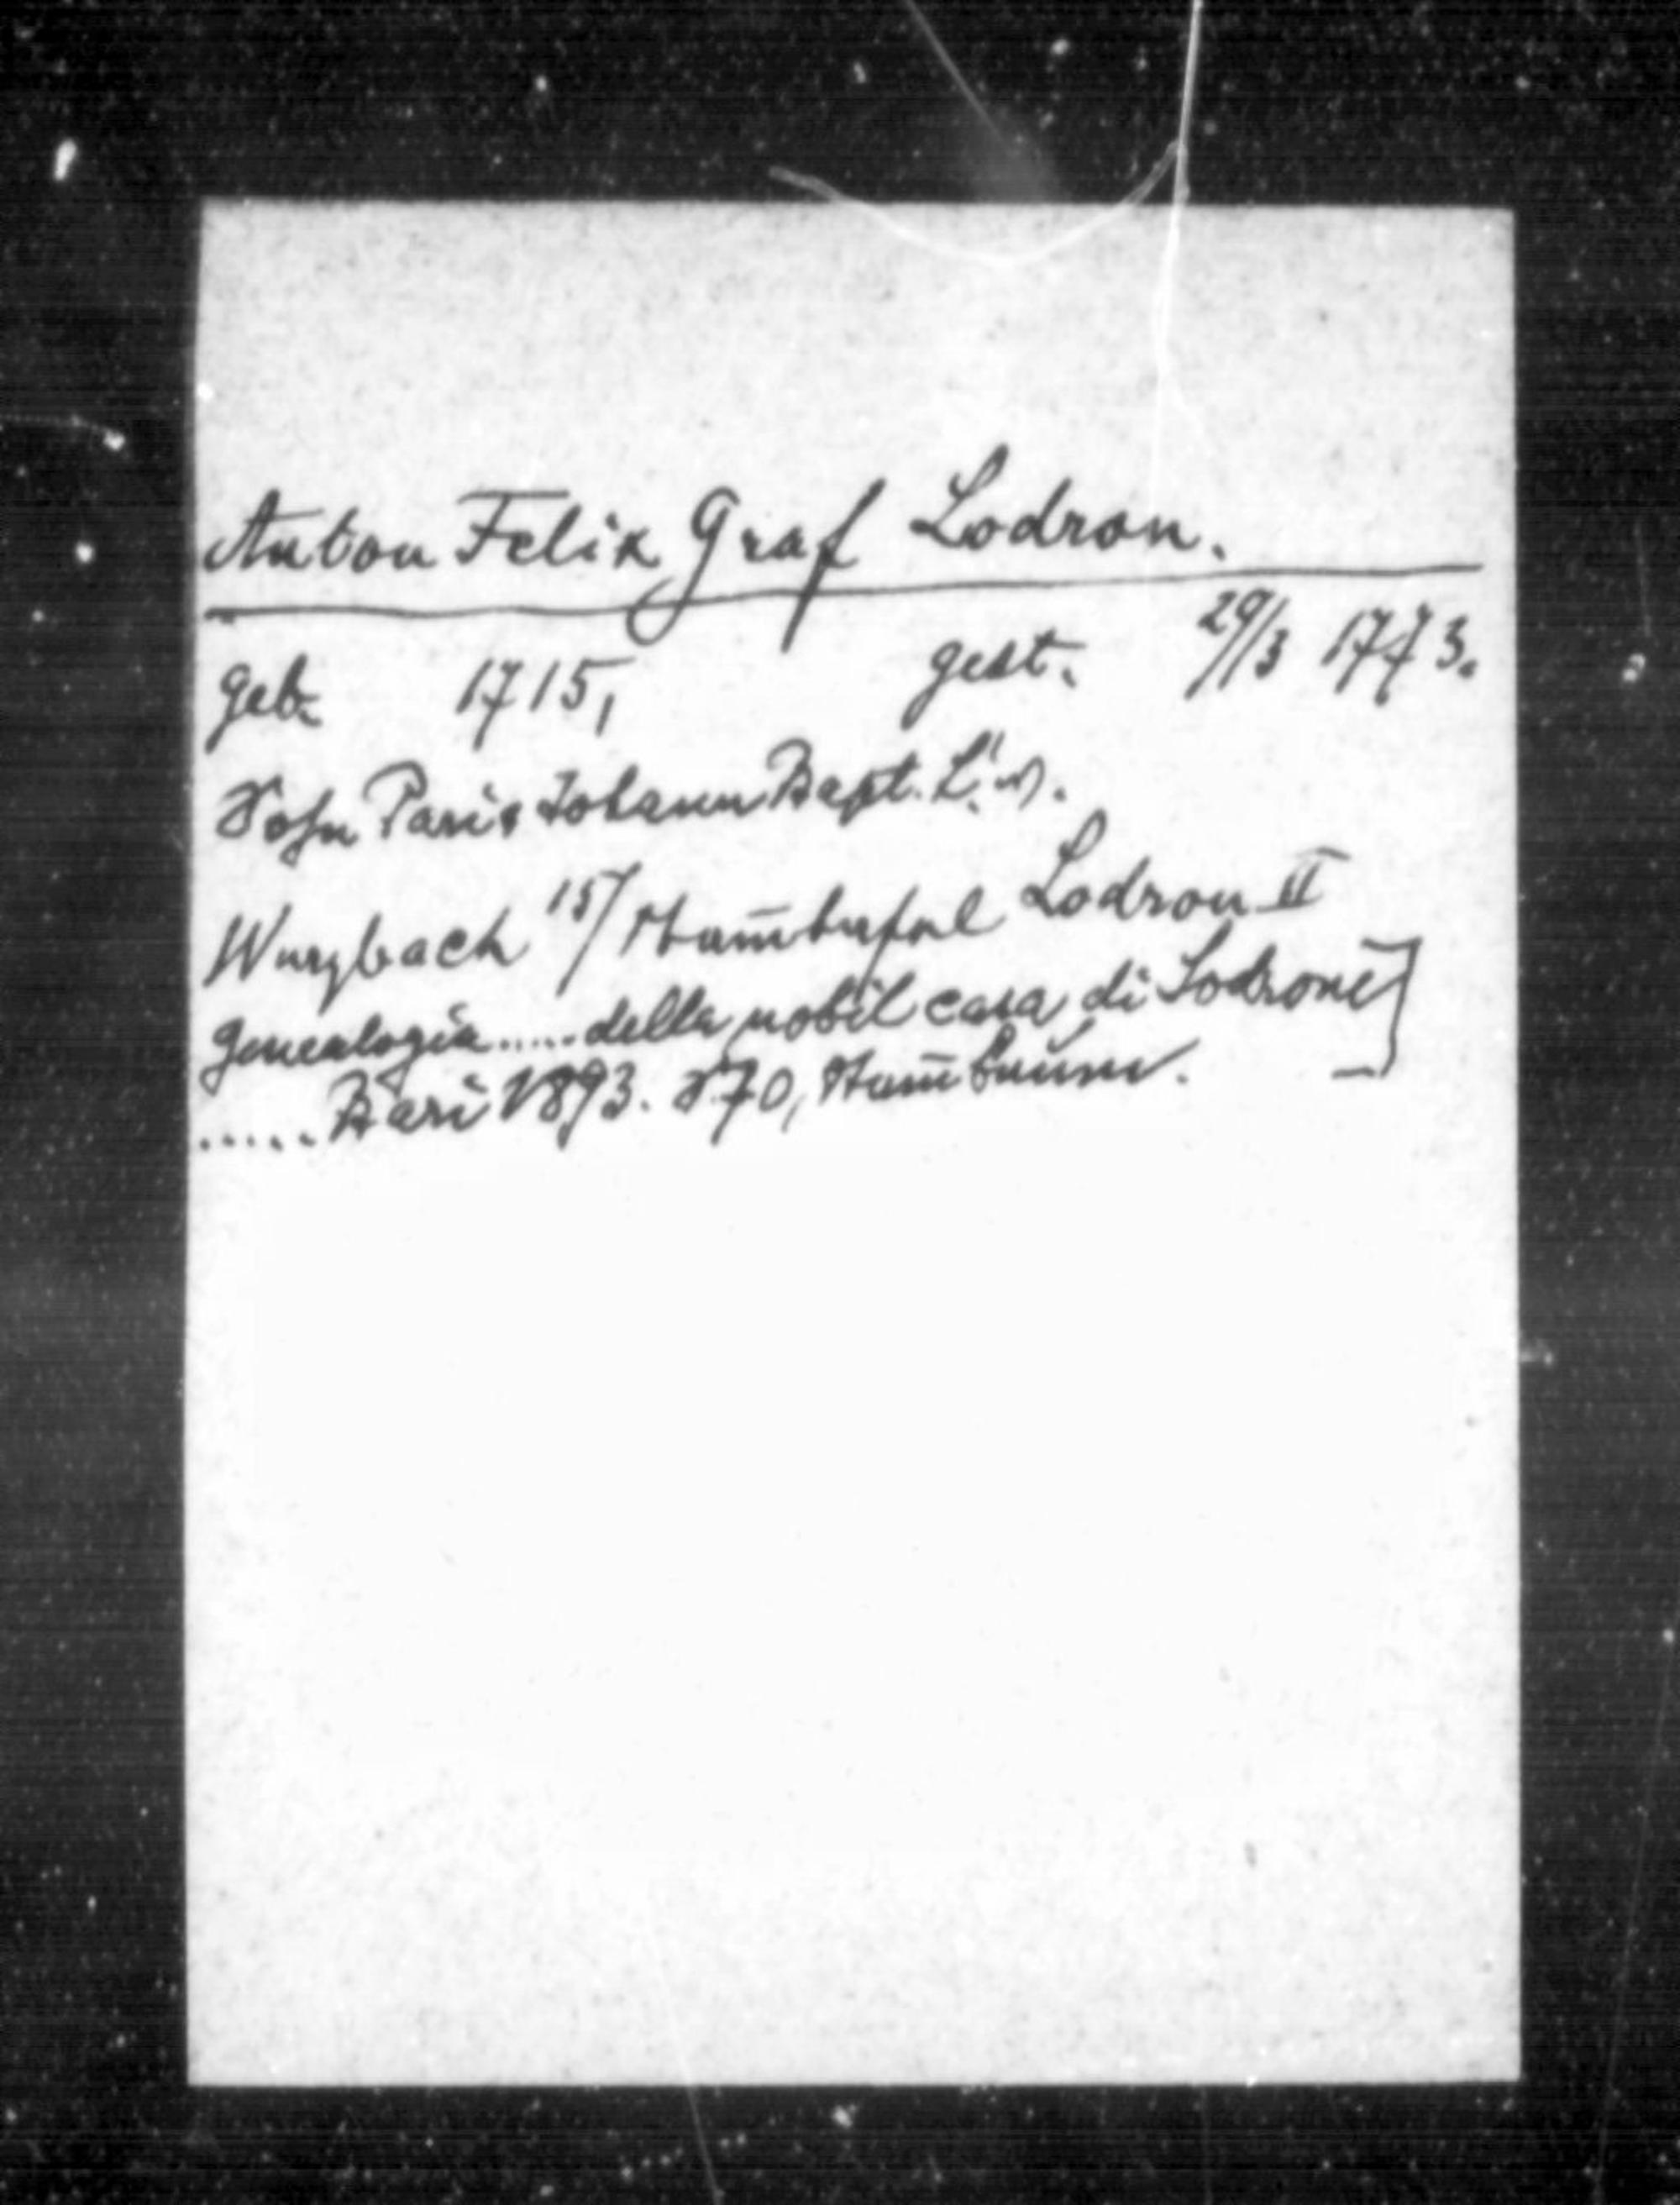 Anton Felix Graf Lodron.
geb. 1715, gest. 29/3 1773.
Sohn Paris Johann Bapt. L's.
Wurzbach 15/Stam̄tafel Lodron II
Genealogia.....della nobil casa di Lodrone]
.....Bari 1893. S 70, Stam̄baum.